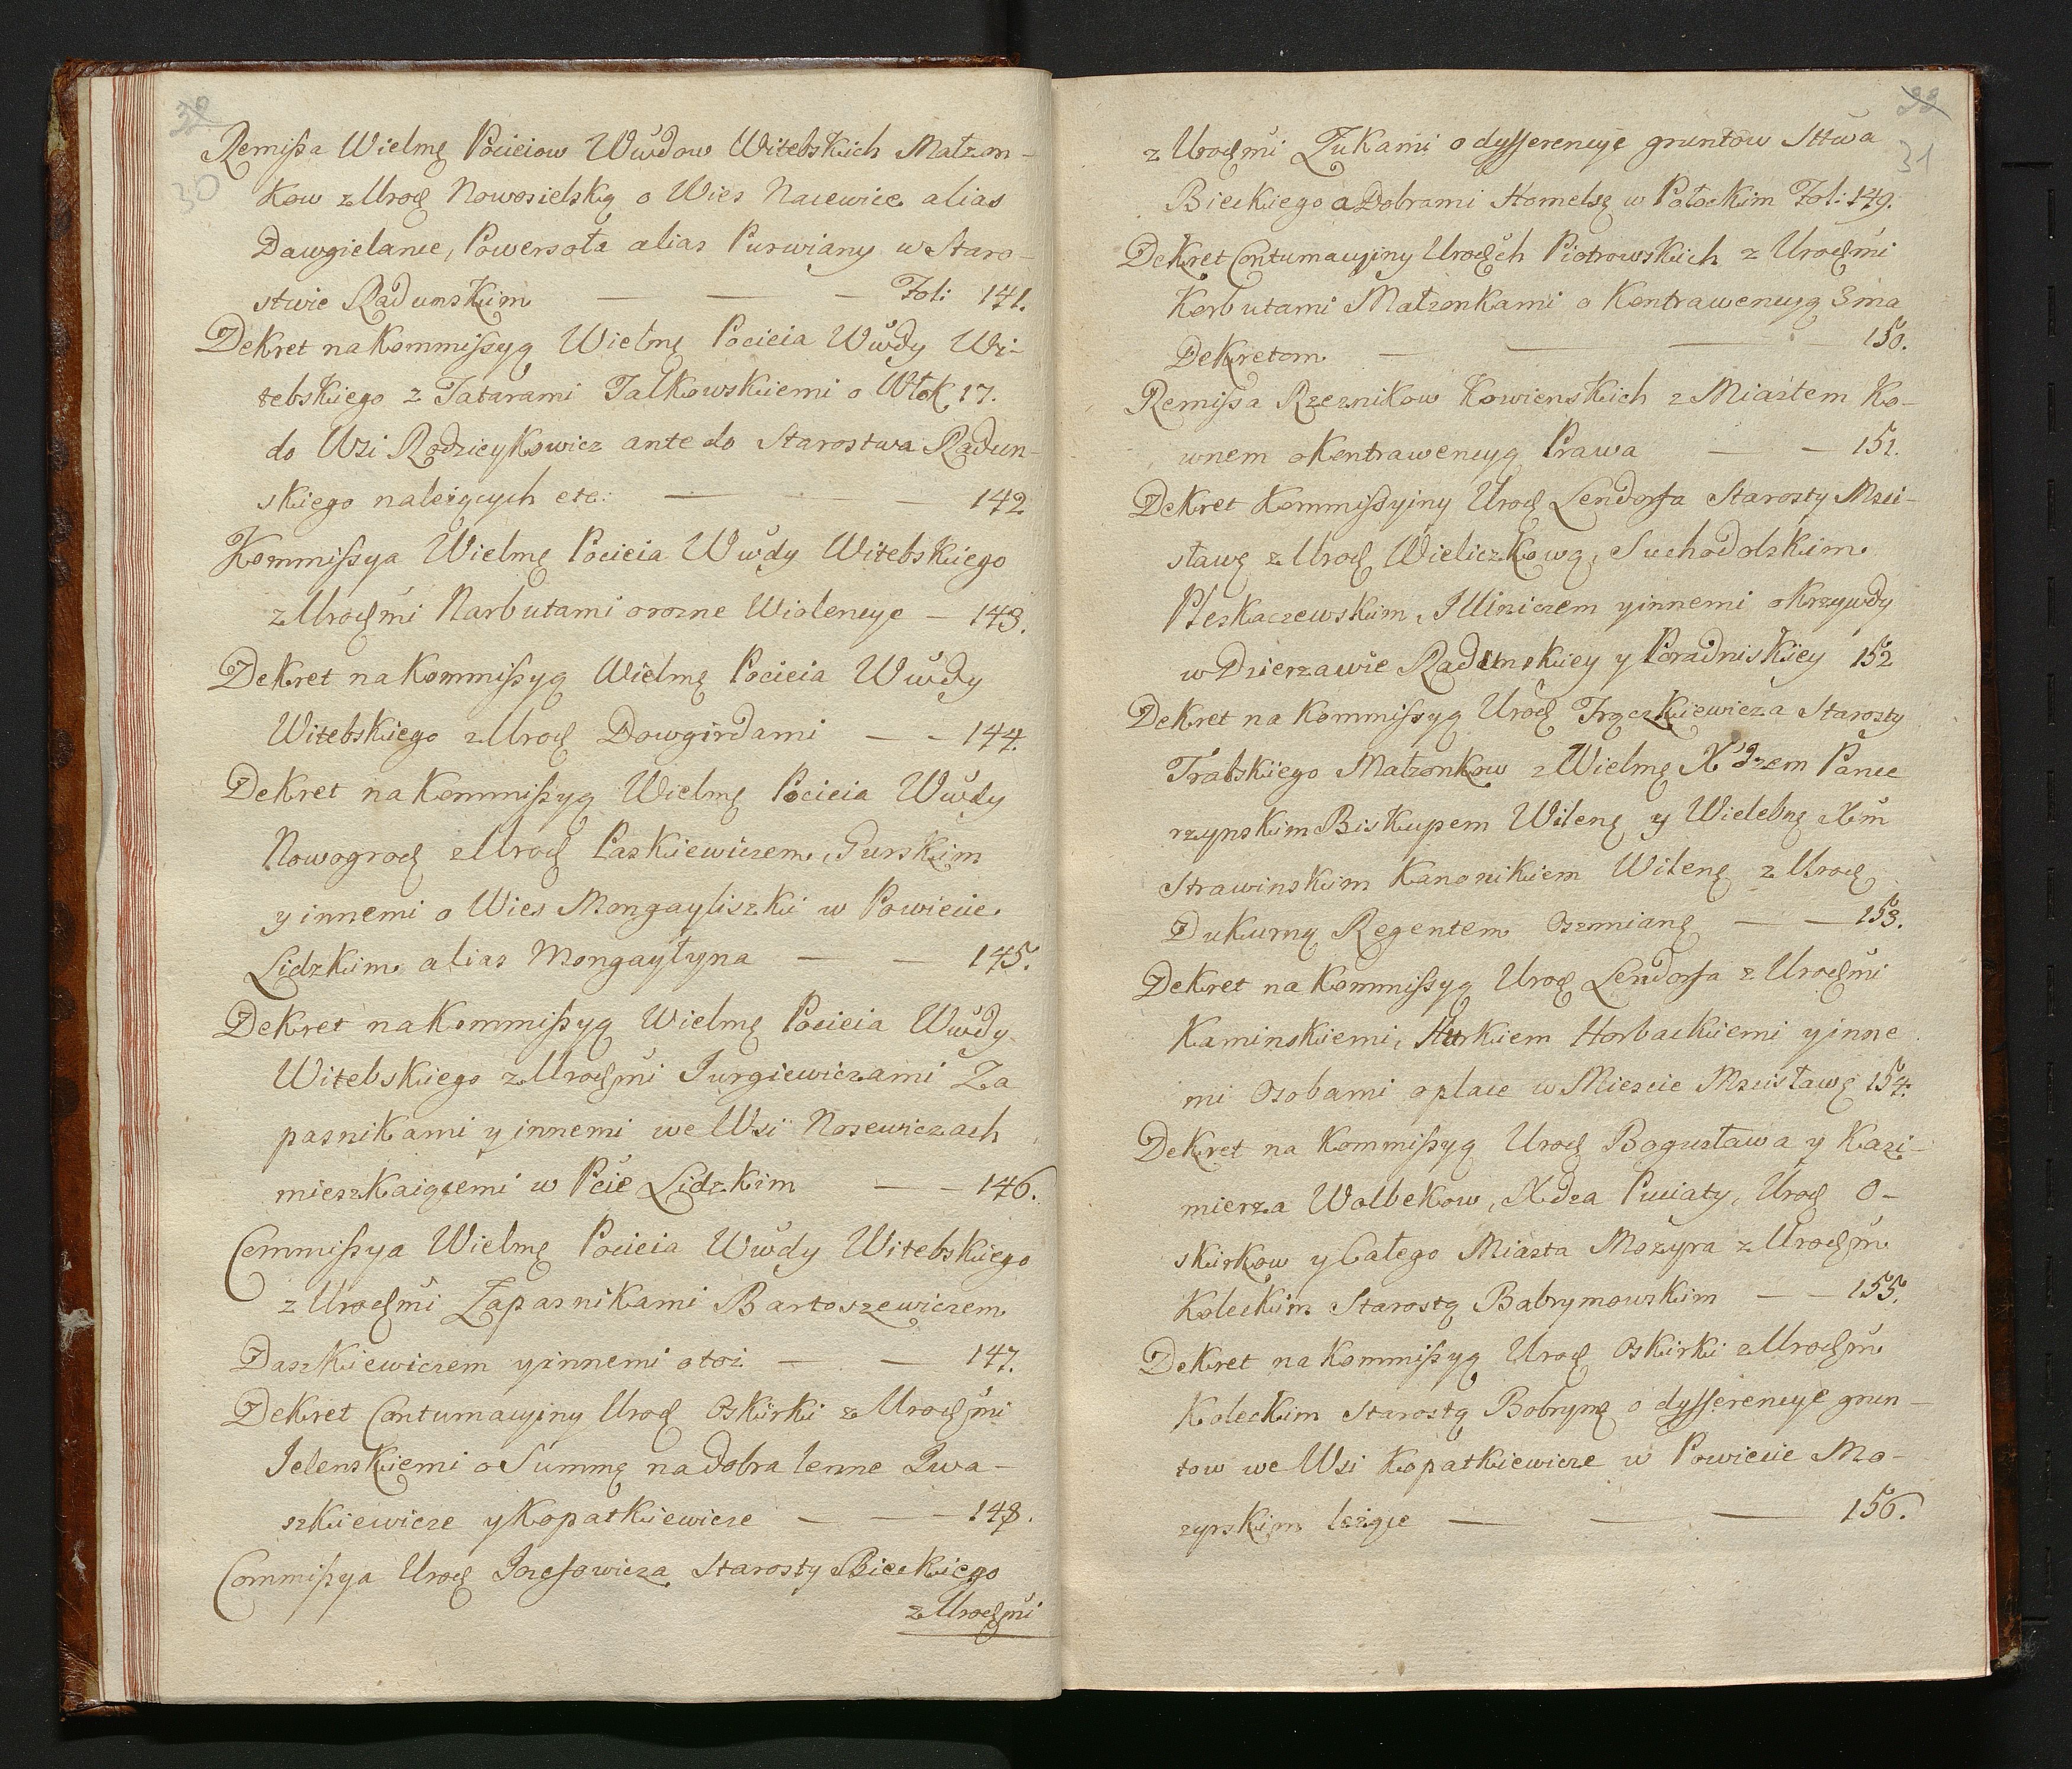 32
30
Remissa Wielmę Pocieiow Wwdow Witebskich Małzon-
kow z Urodz Nowosielską o Wies Nacewice alias
Dawgielance, Powersoła alias Purwiany w Staro-
stwie Radunskim — — — Fol: 141.
Dekret na Kommissyą Wielmę Pocieia Wwdy Wi-
tebskiego z Tatarami Talkowskiemi o Włok 17.
do Wsi Rodzieykowicz ante do Starostwa Radun-
skiego należących etc: — — — 142
Kommissya Wielmę Pocieia Wwdy Witebskiego
z Urodzmi Narbutami o rozne Wiolencye — 143.
Dekret na Kommissyą Wielmę Pocieia Wwdy
Witebskiego z Urodz Dowgirdami — — 144.
Dekret na Kommissyą Wielmę Pocieia Wwdy
Nowogrodz z Urodz Paskiewiczem, Gurskim
y innemi o Wies Mongayliszki w Powiecie
Lidzkim alias Mongayłyna — — 145.
Dekret na Kommissyą Wielmę Pocieia Wwdy
Witebskiego z Urodzmi Jurgiewiczami Za
pasnikami y innemi we Wsi Nosewiczach
mieszkaiącemi w Pcie Lidzkim — — 146.
Commissya Wielmę Pocieia Wwdy Witebskiego
z Urodzmi Zapasnikami Bartoszewiczem
Daszkiewiczem y innemi o toż — — 147.
Dekret Contumacyiny Urodz Oskirki z Urodzmi
Jelenskiemi o Summę na dobra lenne Iwa-
szkiewicze y Kopatkiewicze — — — 148.
Commissya Urodz Jozefowicza Starosty Bieckiego
z Urodzmi
33
31
z Urodzmi Żukami o dyfferencye gruntow Sttwa
Bieckiego a Dobrami Homelsę w Połockim Fol: 149.
Dekret Contumacyiny Urodzch Piotrowskich z Urodzmi
Korbutami Małzonkami o Kontrawencyą 3ma
Dekretom — — — — 150.
Remissa Rzeznikow Kowienskich z Miastem Ko-
wnem o Kontrawencyą Prawa — — 151.
Dekret Kommissyiny Urodz Lendorfa Starosty Msci-
sławę z Urodz Wieliczkową, Suchodolskim
Pleskaczewskim, Illiniczem y innemi o Krzywdy
w Dzierzawie Radunskiey y Poradniskiey 152
Dekret na Kommissyą Urodz Frączkiewicza Starosty
Trabskiego Małzonkow z Wielmę Xdzem Pance
rzynskim Biskupem Wilenę y Wielebnę Xm
Strawinskim Kanonikiem Wilenę z Urodz
Dukurnę Regentem Oszmianę — — 153.
Dekret na Kommissyą Urodz Lendorfa z Urodzmi
Kaminskiemi, Hurkiem Horbackiemi y inne
mi Osobami o place w Miescie Mscisławę 154.
Dekret na Kommissyą Urodz Bogusława y Kazi-
mierza Wolbekow, Xdza Puciaty, Urodz O-
skirkow y Całego Miasta Mozyra z Urodzm
Koleckim Starostą Babrymowskim — — 155.
Dekret na Kommissyą Urodz Oskirki z Urodzm
Koleckim Starostą Bobrymę o dyfferencye grun-
tow we Wsi Kopatkiewicze w Powiecie Mo-
zyrskim leżące — — — 156.